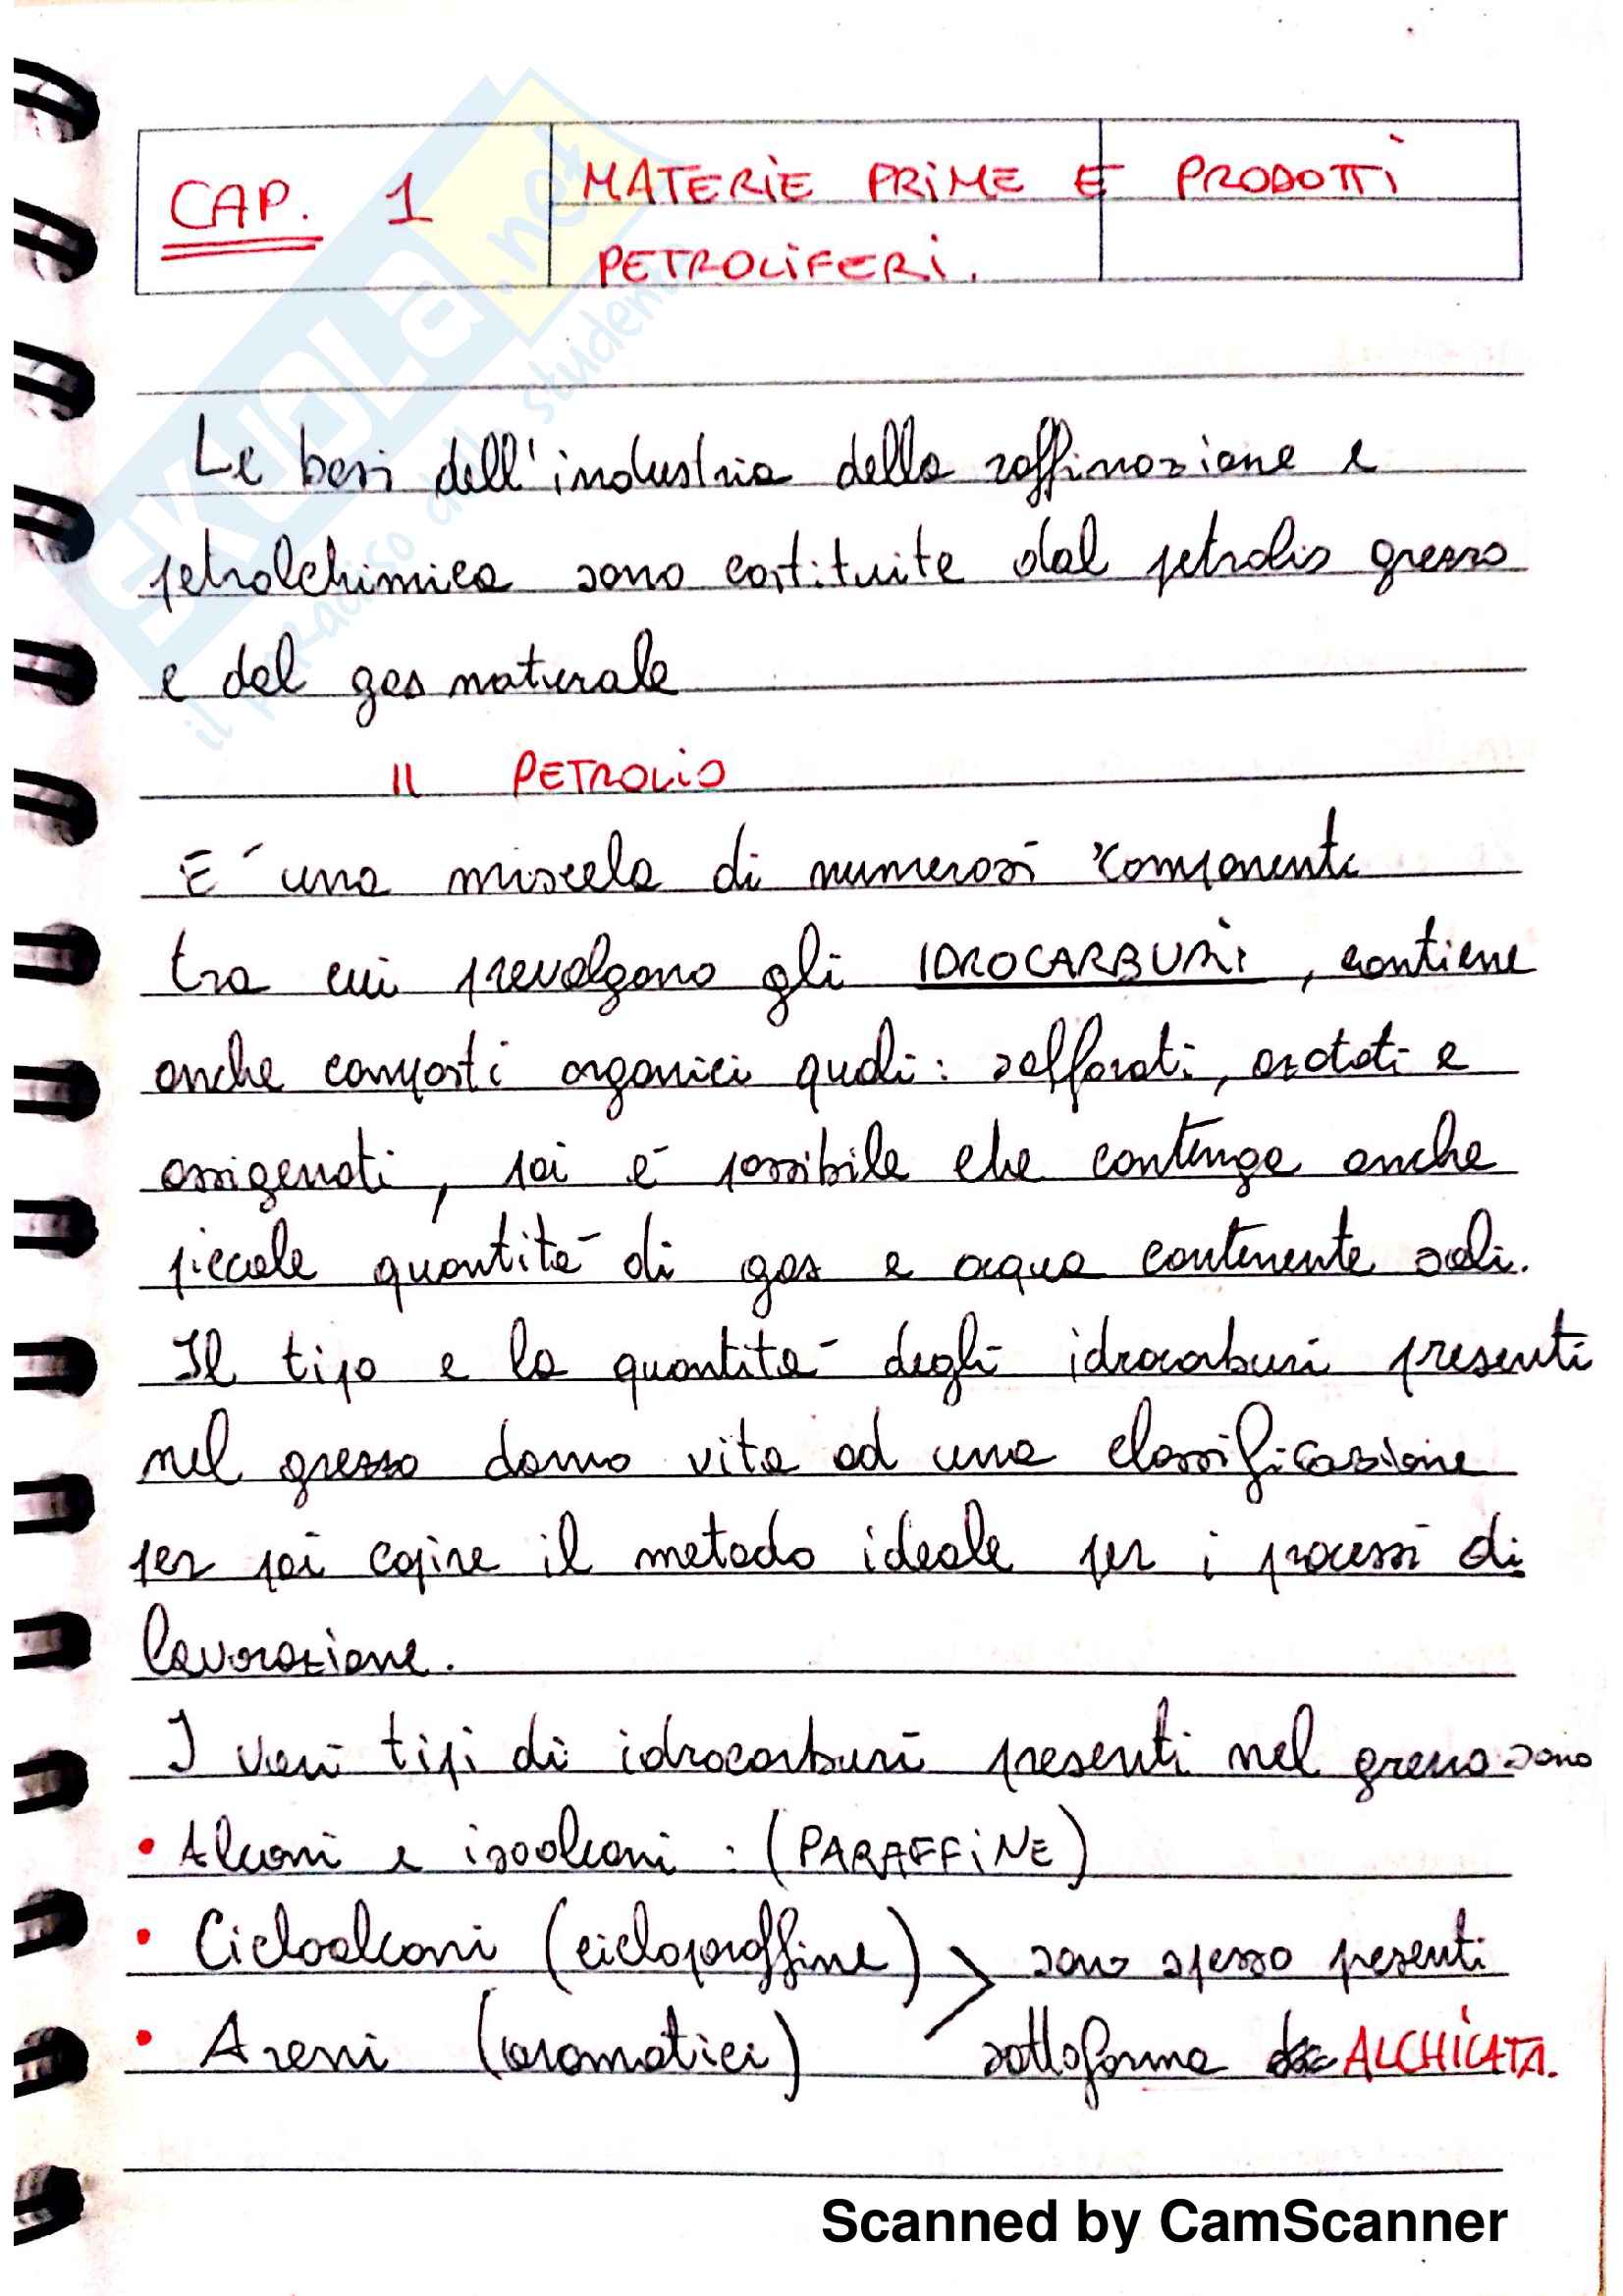 CAP. 1 MATERIE PRIME E PRODOTTI
PETROLIFERI.
SKUOLA.net
il paradiso dello studente
Le basi dell'industria della raffinazione e
petrolchimica sono costituite dal petrolio grezzo
e dal gas naturale
Il PETROLIO
E' una miscela di numerosi componenti
tra cui prevalgono gli IDROCARBURI, contiene
anche composti organici quali: solforati, azotati e
ossigenati, poi è possibile che contenga anche
piccole quantità di gas e acqua contenente sali.
Il tipo e la quantità degli idrocarburi presenti
nel grezzo danno vita ad una classificazione
per poi capire il metodo ideale per i processi di
lavorazione.
I vari tipi di idrocarburi presenti nel grezzo sono
• Alcani e isoalcani : (PARAFFINE)
• Cicloalcani (cicloparaffine) > sono spesso presenti
• Areni (aromatici) sottoforma ALCHILATA.
Scanned by CamScanner